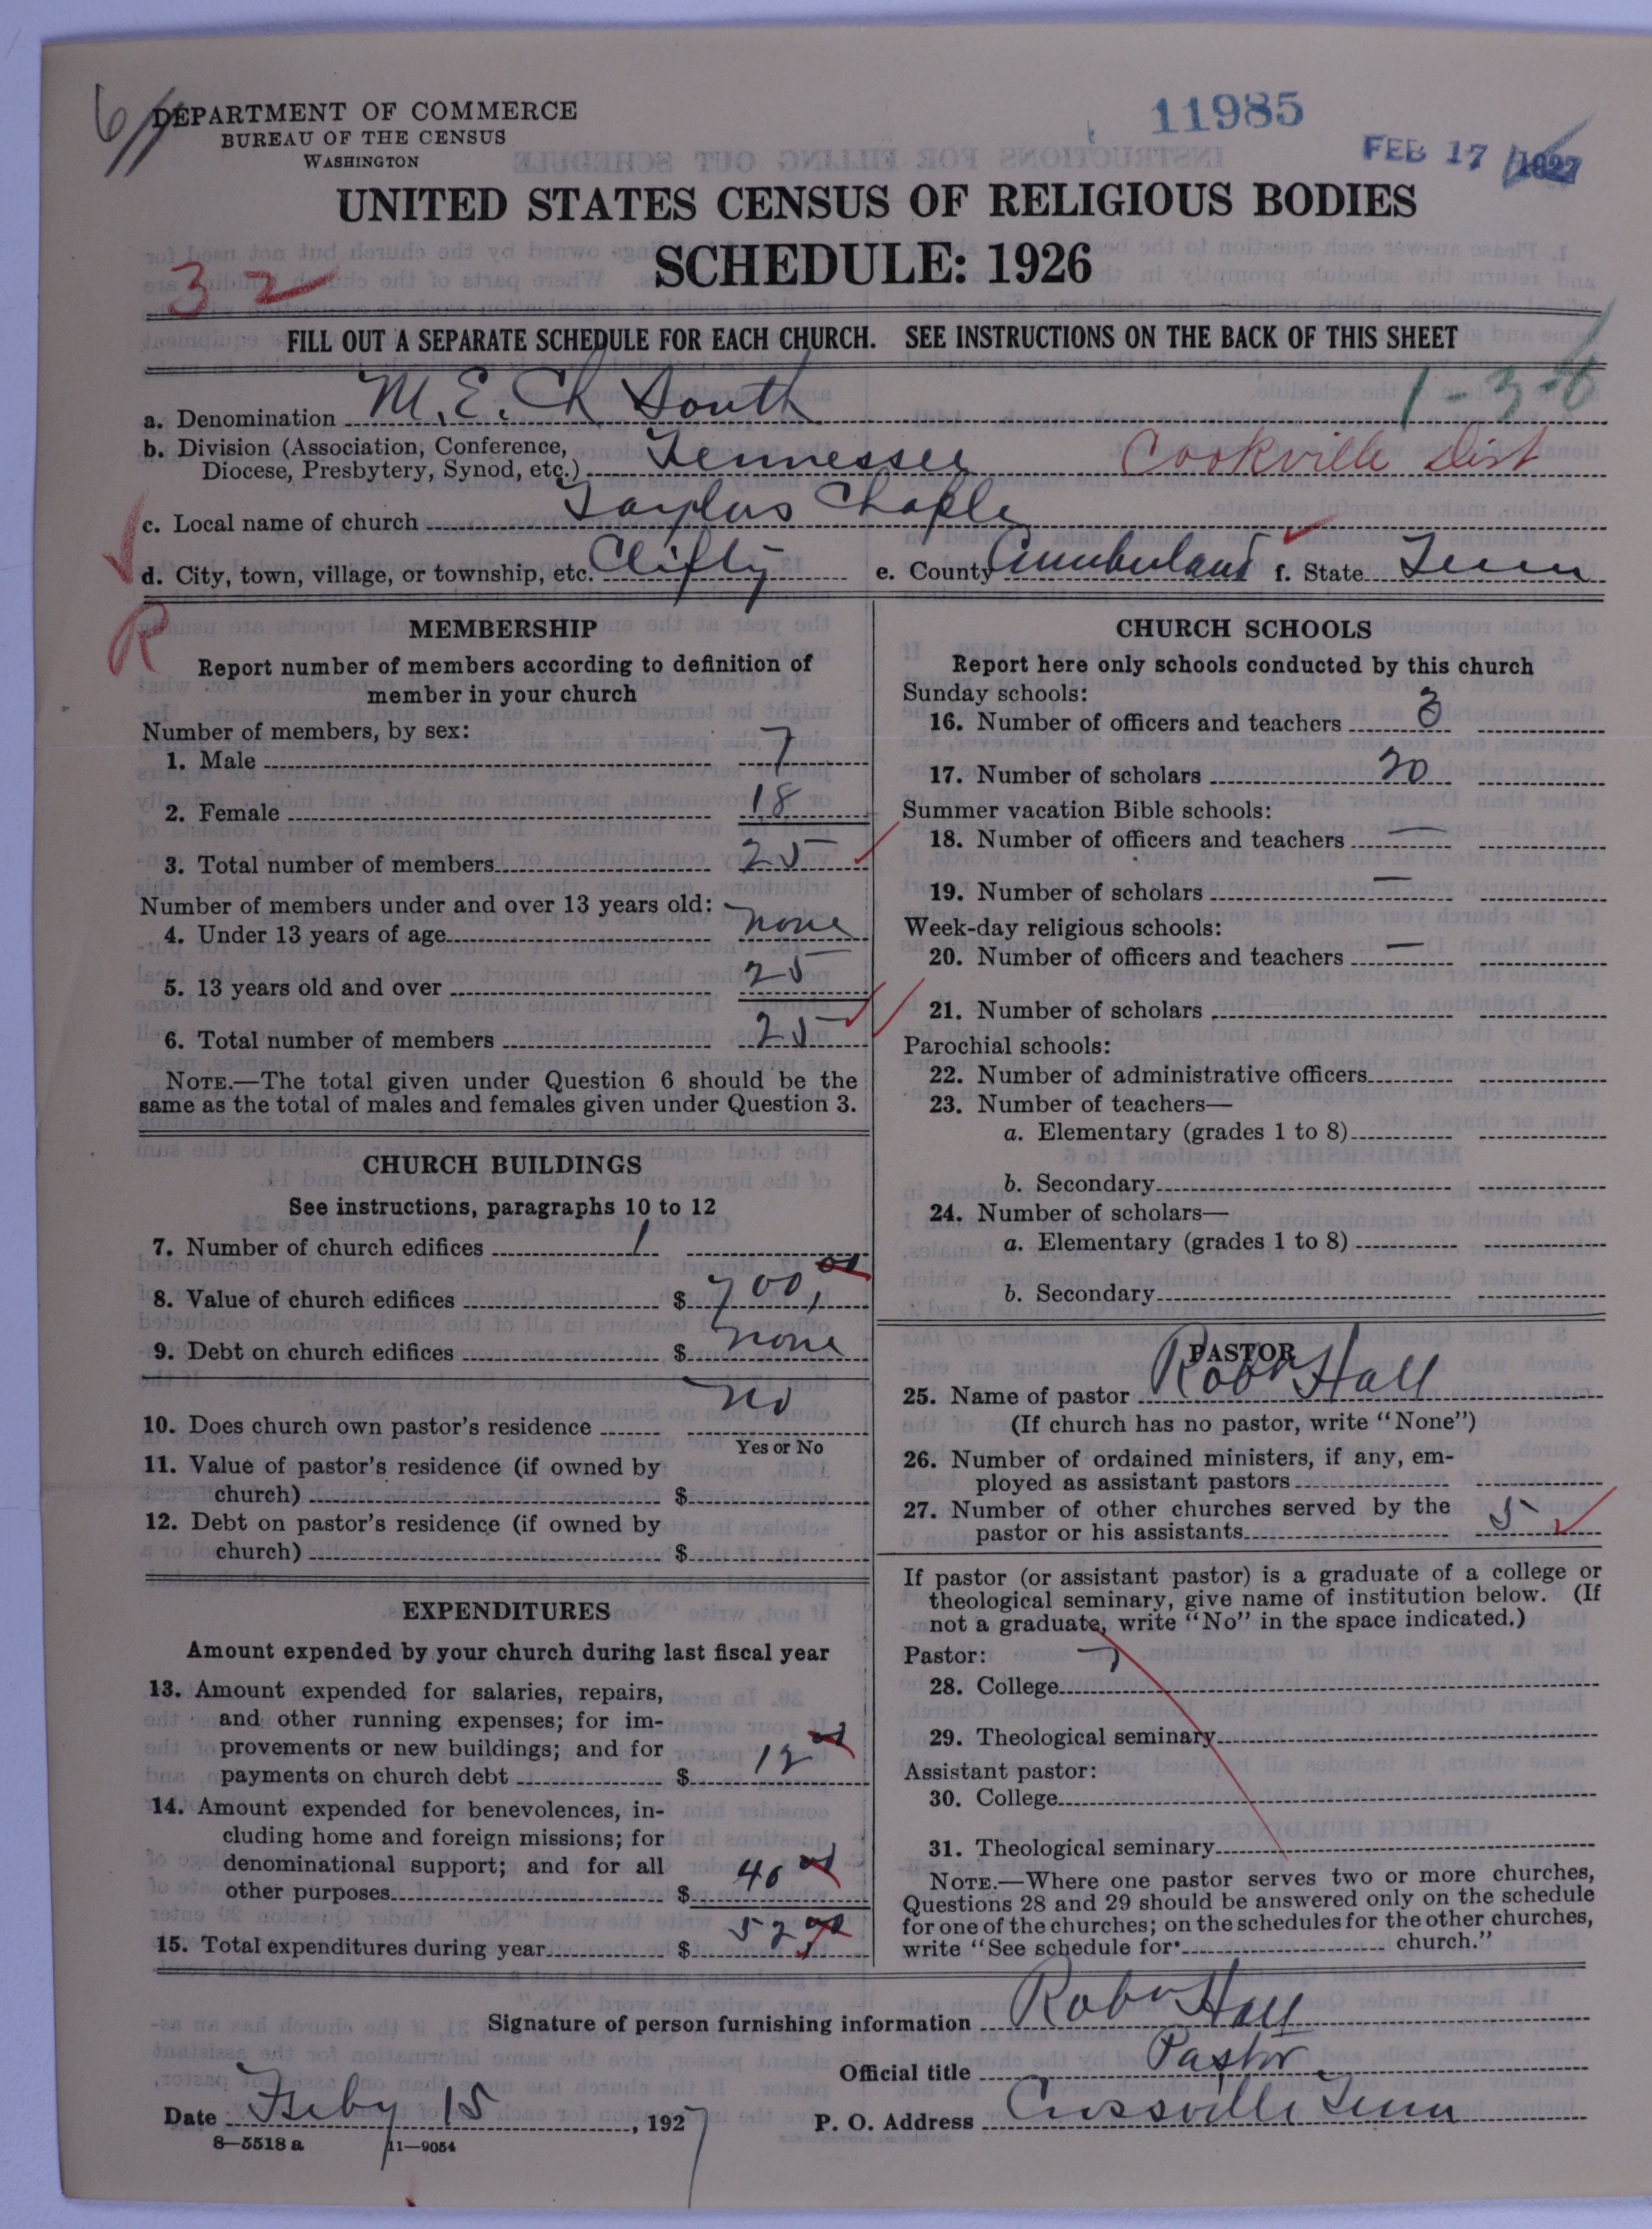 6/
DEPARTMENT OF COMMERCE
BUREAU OF THE CENSUS
WASHINGTON
11985
FEB 17 1927
UNITED STATES CENSUS OF RELIGIOUS BODIES
SCHEDULE: 1926
32
FILL OUT A SEPARATE SCHEDULE FOR EACH CHURCH. SEE INSTRUCTIONS ON THE BACK OF THIS SHEET
1-3-6
a. Denomination M. E. Ch South
b. Division (Association, Conference,
Diocese, Presbytery, Synod, etc.) Tennessee Cookville Dist
c. Local name of church Taylors Chaple
d. City, town, village, or township, etc. Clifty e. County Cumberland f. State Tenn
R
MEMBERSHIP
Report number of members according to definition of
member in your church
Number of members, by sex:
1. Male 7
2. Female 18
3. Total number of members 25
Number of members under and over 13 years old:
4. Under 13 years of age none
5. 13 years old and over 25
6. Total number of members 25
NOTE.—The total given under Question 6 should be the
same as the total of males and females given under Question 3.
CHURCH BUILDINGS
See instructions, paragraphs 10 to 12
7. Number of church edifices 1
8. Value of church edifices $ 700,00
9. Debt on church edifices $ none
10. Does church own pastor's residence no
Yes or No
11. Value of pastor's residence (if owned by
church) $
12. Debt on pastor's residence (if owned by
church) $
EXPENDITURES
Amount expended by your church during last fiscal year
13. Amount expended for salaries, repairs,
and other running expenses; for im-
provements or new buildings; and for
payments on church debt $ 12 00
14. Amount expended for benevolences, in-
cluding home and foreign missions; for
denominational support; and for all
other purposes $ 40 00
15. Total expenditures during year $ 52 00
CHURCH SCHOOLS
Report here only schools conducted by this church
Sunday schools:
16. Number of officers and teachers 3
17. Number of scholars 20
Summer vacation Bible schools:
18. Number of officers and teachers —
19. Number of scholars —
Week-day religious schools:
20. Number of officers and teachers —
21. Number of scholars
Parochial schools:
22. Number of administrative officers
23. Number of teachers—
a. Elementary (grades 1 to 8)
b. Secondary
24. Number of scholars—
a. Elementary (grades 1 to 8)
b. Secondary
PASTOR
25. Name of pastor Robt Hall
(If church has no pastor, write "None")
26. Number of ordained ministers, if any, em-
ployed as assistant pastors
27. Number of other churches served by the
pastor or his assistants 5
If pastor (or assistant pastor) is a graduate of a college or
theological seminary, give name of institution below. (If
not a graduate, write "No" in the space indicated.)
Pastor:
28. College
29. Theological seminary
Assistant pastor:
30. College
31. Theological seminary
NOTE.—Where one pastor serves two or more churches,
Questions 28 and 29 should be answered only on the schedule
for one of the churches; on the schedules for the other churches,
write "See schedule for church."
Signature of person furnishing information Robt Hall
Official title Pastor
Date Feby 15, 1927 P. O. Address Crossville Tenn
8—5518 a 11—9054